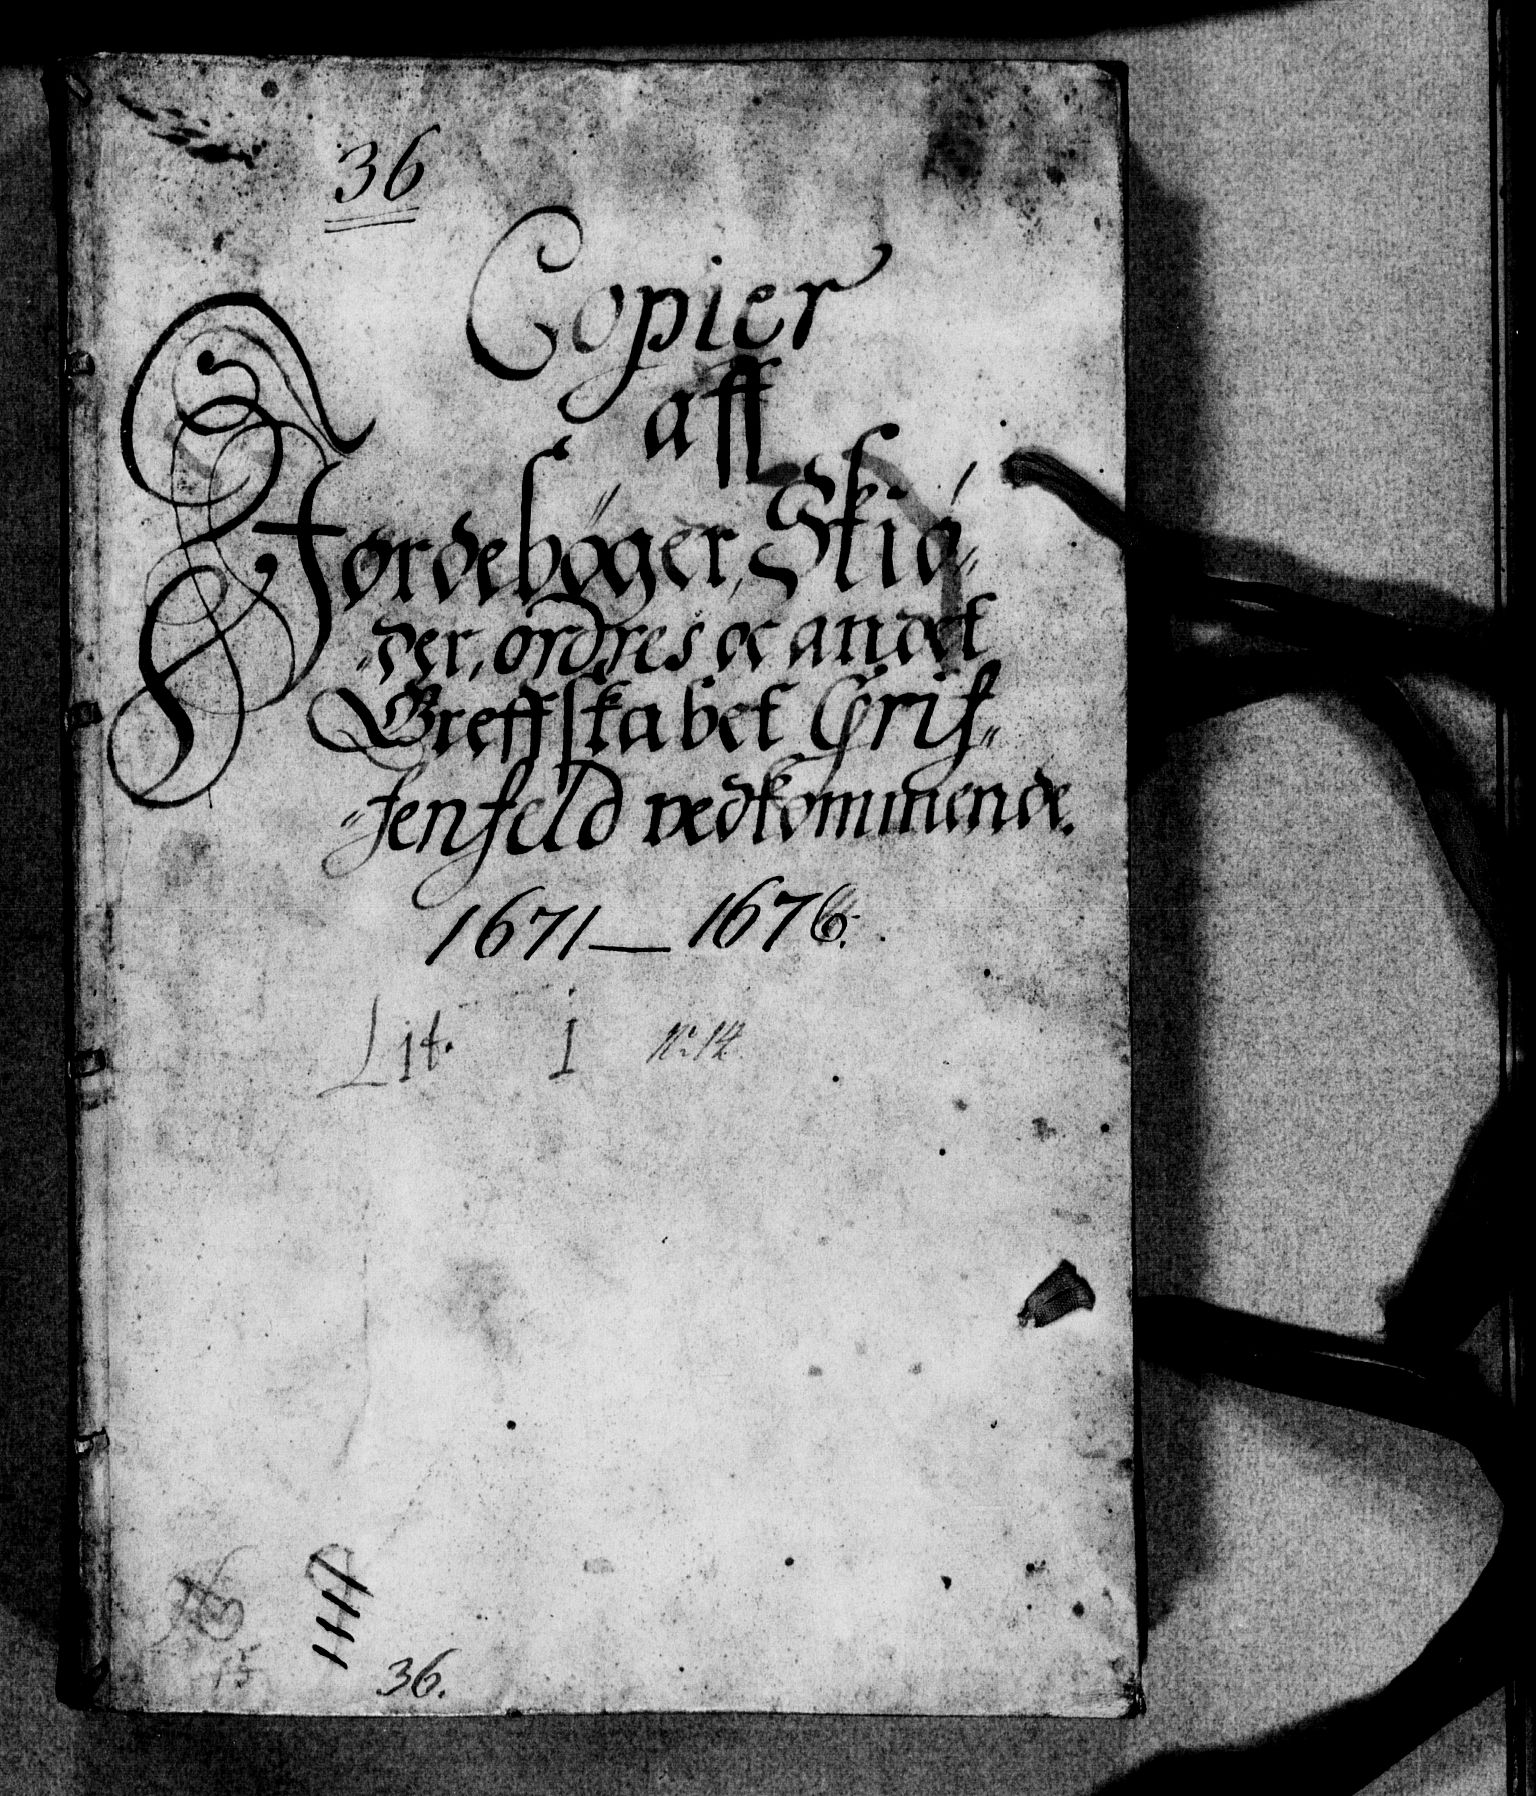 36
Copier
aff
Jordebøger, Skiø-
-der, ordres oc andet
Greffskabet Grif-
-fenfeld vedkommende.
1671 — 1676.
Lit. I No. 14
36.